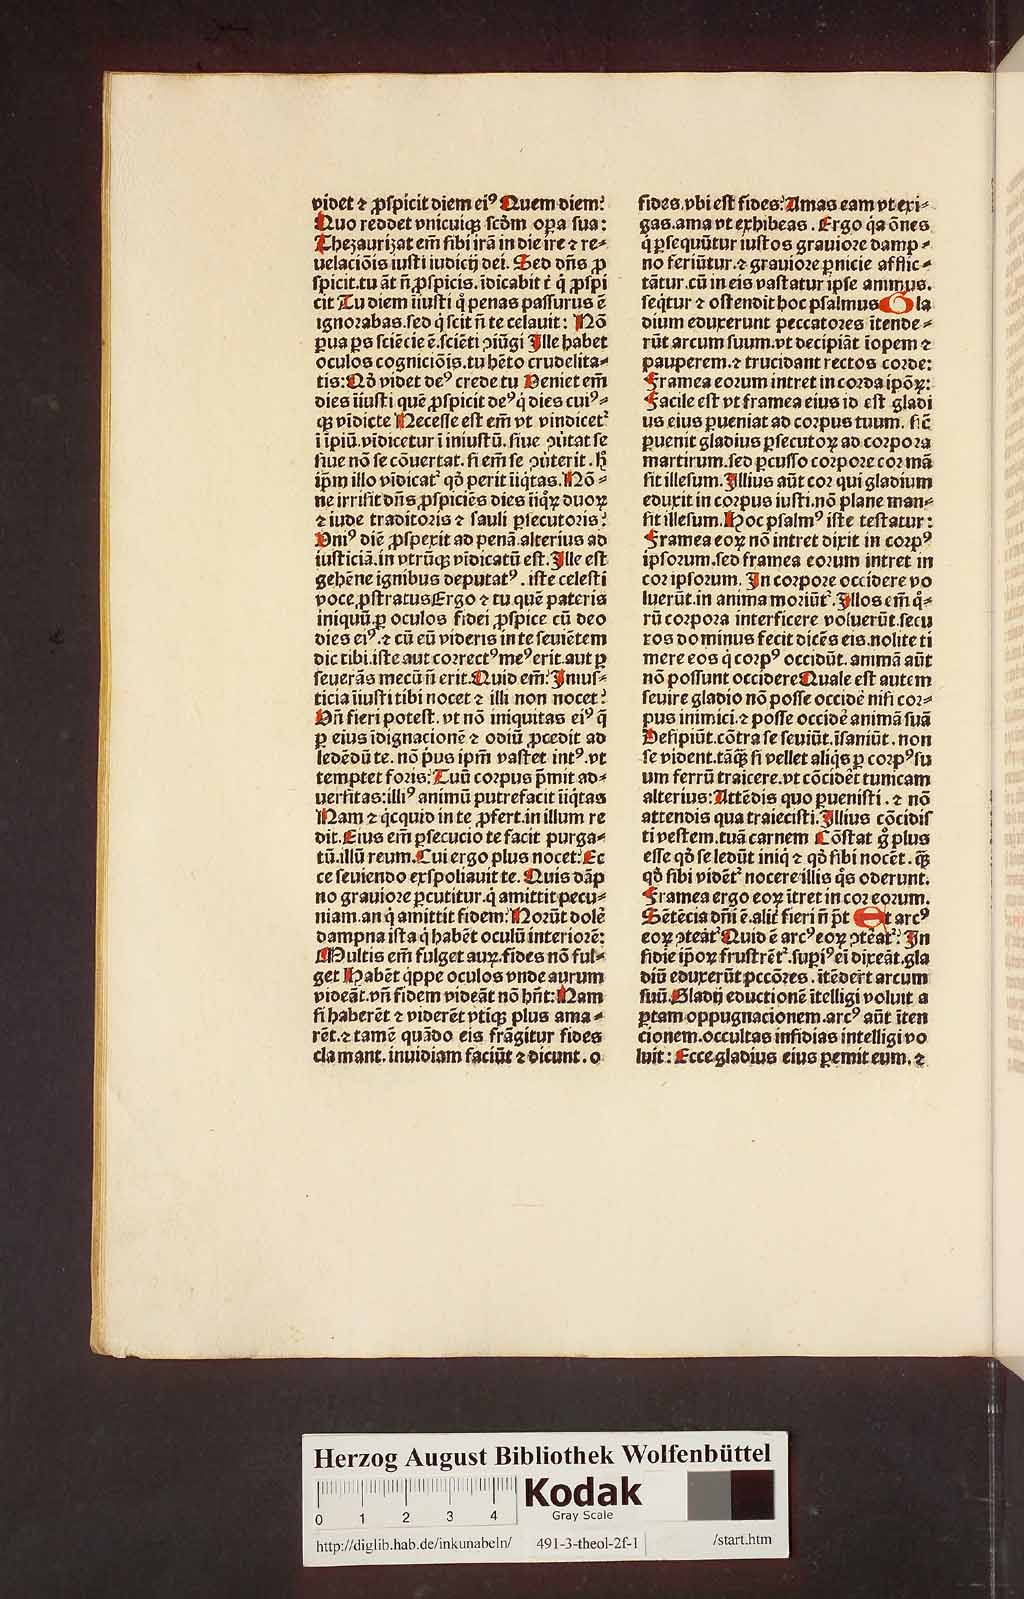 videt ⁊ ꝓspicit diem eiꝰ Quem diem?
Quo reddet vnicuiqꝫ scd̄m oꝑa sua:
Thezaurizat em̄ sibi irā in die ire ⁊ re⸗
uelaciōis iusti iudicij dei. Sed dn̄s ꝓ
spicit.tu āt n̄ ꝓspicis. īdicabit t̄ q̇ ꝓspi
cit Tu diem īiusti q̇ penas passurus ē
ignorabas.sed q̇ scit n̄ te celauit: Nō
ꝑua ps sciēcie ē.sciēti ꝯiūgi Ille habet
oculos cogniciōis.tu hēto crudelita⸗
tis: Nō videt deꝰ crede tu Veniet em̄
dies īiusti quē ꝓspicit deꝰ q̇ dies cuiꝰ⸗
qꝫ vīdicte Necesse est em̄ vt vindicetᷣ
ī īpiū.vīdicetur ī iniustū. siue ꝯūtat se
siue nō se cōuertat. si em̄ se ꝯūterit. hͦ
ip̄m illo vīdicatᷣ qd̄ perit īiq̇tas. Nō⸗
ne irrisit dn̄s ꝓspiciēs dies īiq̇ꝝ duoꝝ
⁊ iude traditoris ⁊ sauli ꝑsecutoris?
Vniꝰ diē ꝓspexit ad penā.alterius ad
iusticiā.in vtrūqꝫ vīdicatū est. Ille est
gehēne ignibus deputatꝰ. iste celesti
voce ꝓstratus Ergo ⁊ tu quē pateris
iniquū.ꝑ oculos fidei ꝓspice cū deo
dies eiꝰ.⁊ cū eū videris in te seuiētem
dic tibi.iste aut correctꝰ meꝰ erit.aut ꝑ
seuerās mecū n̄ erit. Quid em̄? Inius⸗
ticia īiusti tibi nocet ⁊ illi non nocet?
Vn̄ fieri potest. vt nō iniquitas eiꝰ q̇
ꝑ eius īdignacionē ⁊ odiū ꝓcedit ad
ledēdū te. nō p̄us ip̄m vastet intꝰ.vt
temptet foris? Tuū corpus p̄mit ad⸗
uersitas:illiꝰ animū putrefacit īiq̇tas
Nam ⁊ q̇cquid in te ꝓfert.in illum re
dit. Eius em̄ ꝑsecucio te facit purga⸗
tū.illū reum. Cui ergo plus nocet? Ec
ce seuiendo exspoliauit te. Quis dāp
no grauiore ꝑcutitur.q̇ amittit pecu⸗
niam.an q̇ amittit fidem? Norūt dolē
dampna ista q̇ habēt oculū interiorē:
Multis em̄ fulget auꝝ.fides nō ful⸗
get Habēt q̇ppe oculos vnde aurum
videāt.vn̄ fidem videāt nō hn̄t: Nam
si haberēt ⁊ viderēt vtiqꝫ plus ama⸗
rēt.⁊ tamē quādo eis frāgitur fides
clamant. inuidiam faciūt ⁊ dicunt. o
fides.vbi est fides? Amas eam vt exi⸗
gas.ama vt exhibeas. Ergo q̇a ōnes
q̇ ꝑsequūtur iustos grauiore damp⸗
no feriūtur.⁊ grauiore ꝑnicie afflic⸗
tātur.cū in eis vastatur ipse animus.
seq̇tur ⁊ ostendit hoc psalmus Gla
dium eduxerunt peccatores ītende⸗
rūt arcum suum.vt decipiāt īopem ⁊
pauperem.⁊ trucidant rectos corde:
Framea eorum intret in corda ipōꝝ:
Facile est vt framea eius id est gladi
us eius ꝑueniat ad corpus tuum. sic̄
ꝑuenit gladius ꝑsecutoꝝ ad corpora
martirum.sed ꝑcusso corpore cor mā
sit illesum. Illius aūt cor qui gladium
eduxit in corpus iusti.nō plane man⸗
sit illesum. Hoc psalmꝰ iste testatur:
Framea eoꝝ nō intret dixit in corpꝰ
ipsorum.sed framea eorum intret in
cor ipsorum. In corpore occidere vo
luerūt.in anima moriūtᷣ. Illos em̄ qͦ⸗
rū corpora interficere voluerūt.secu
ros dominus fecit dicēs eis.nolite ti
mere eos q̇ corpꝰ occidūt. animā aūt
nō possunt occidere Quale est autem
seuire gladio nō posse occidē nisi cor⸗
pus inimici.⁊ posse occidē animā suā
Desipiūt.cōtra se seuiūt.īsaniūt. non
se vident.tāqꝫ si vellet aliq̇s ꝑ corpꝰ su
um ferrū traicere.vt cōcidēt tunicam
alterius: Attēdis quo ꝑuenisti. ⁊ nō
attendis qua traiecisti. Illius cōcidis
ti vestem.tuā carnem Cōstat gͦ plus
esse qd̄ se ledūt iniq̇ ⁊ qd̄ sibi nocēt. qꝫ
qd̄ sibi vidētᷣ nocere illis q̇s oderunt.
Framea ergo eoꝝ ītret in cor eorum.
Sētēcia dn̄i ē.alit̄ fieri n̄ p̄t Et arcꝰ
eoꝝ ꝯteātᷣ Quid ē arcꝰ eoꝝ ꝯteātᷣ? In
sidie ipōꝝ frustrētᷣ.supiꝰ ei dixeāt.gla
diū eduxerūt pccōres. ītēdert arcum
suū. Gladij eductionē ītelligi voluit a
ꝑtam oppugnacionem.arcꝰ aūt īten
cionem.occultas insidias intelligi vo
luit: Ecce gladius eius ꝑemit eum. ⁊
Herzog August Bibliothek Wolfenbüttel
0 1 2 3 4
Kodak
Gray Scale
http://diglib.hab.de/inkunabeln/ 491-3-theol-2f-1 /start.htm